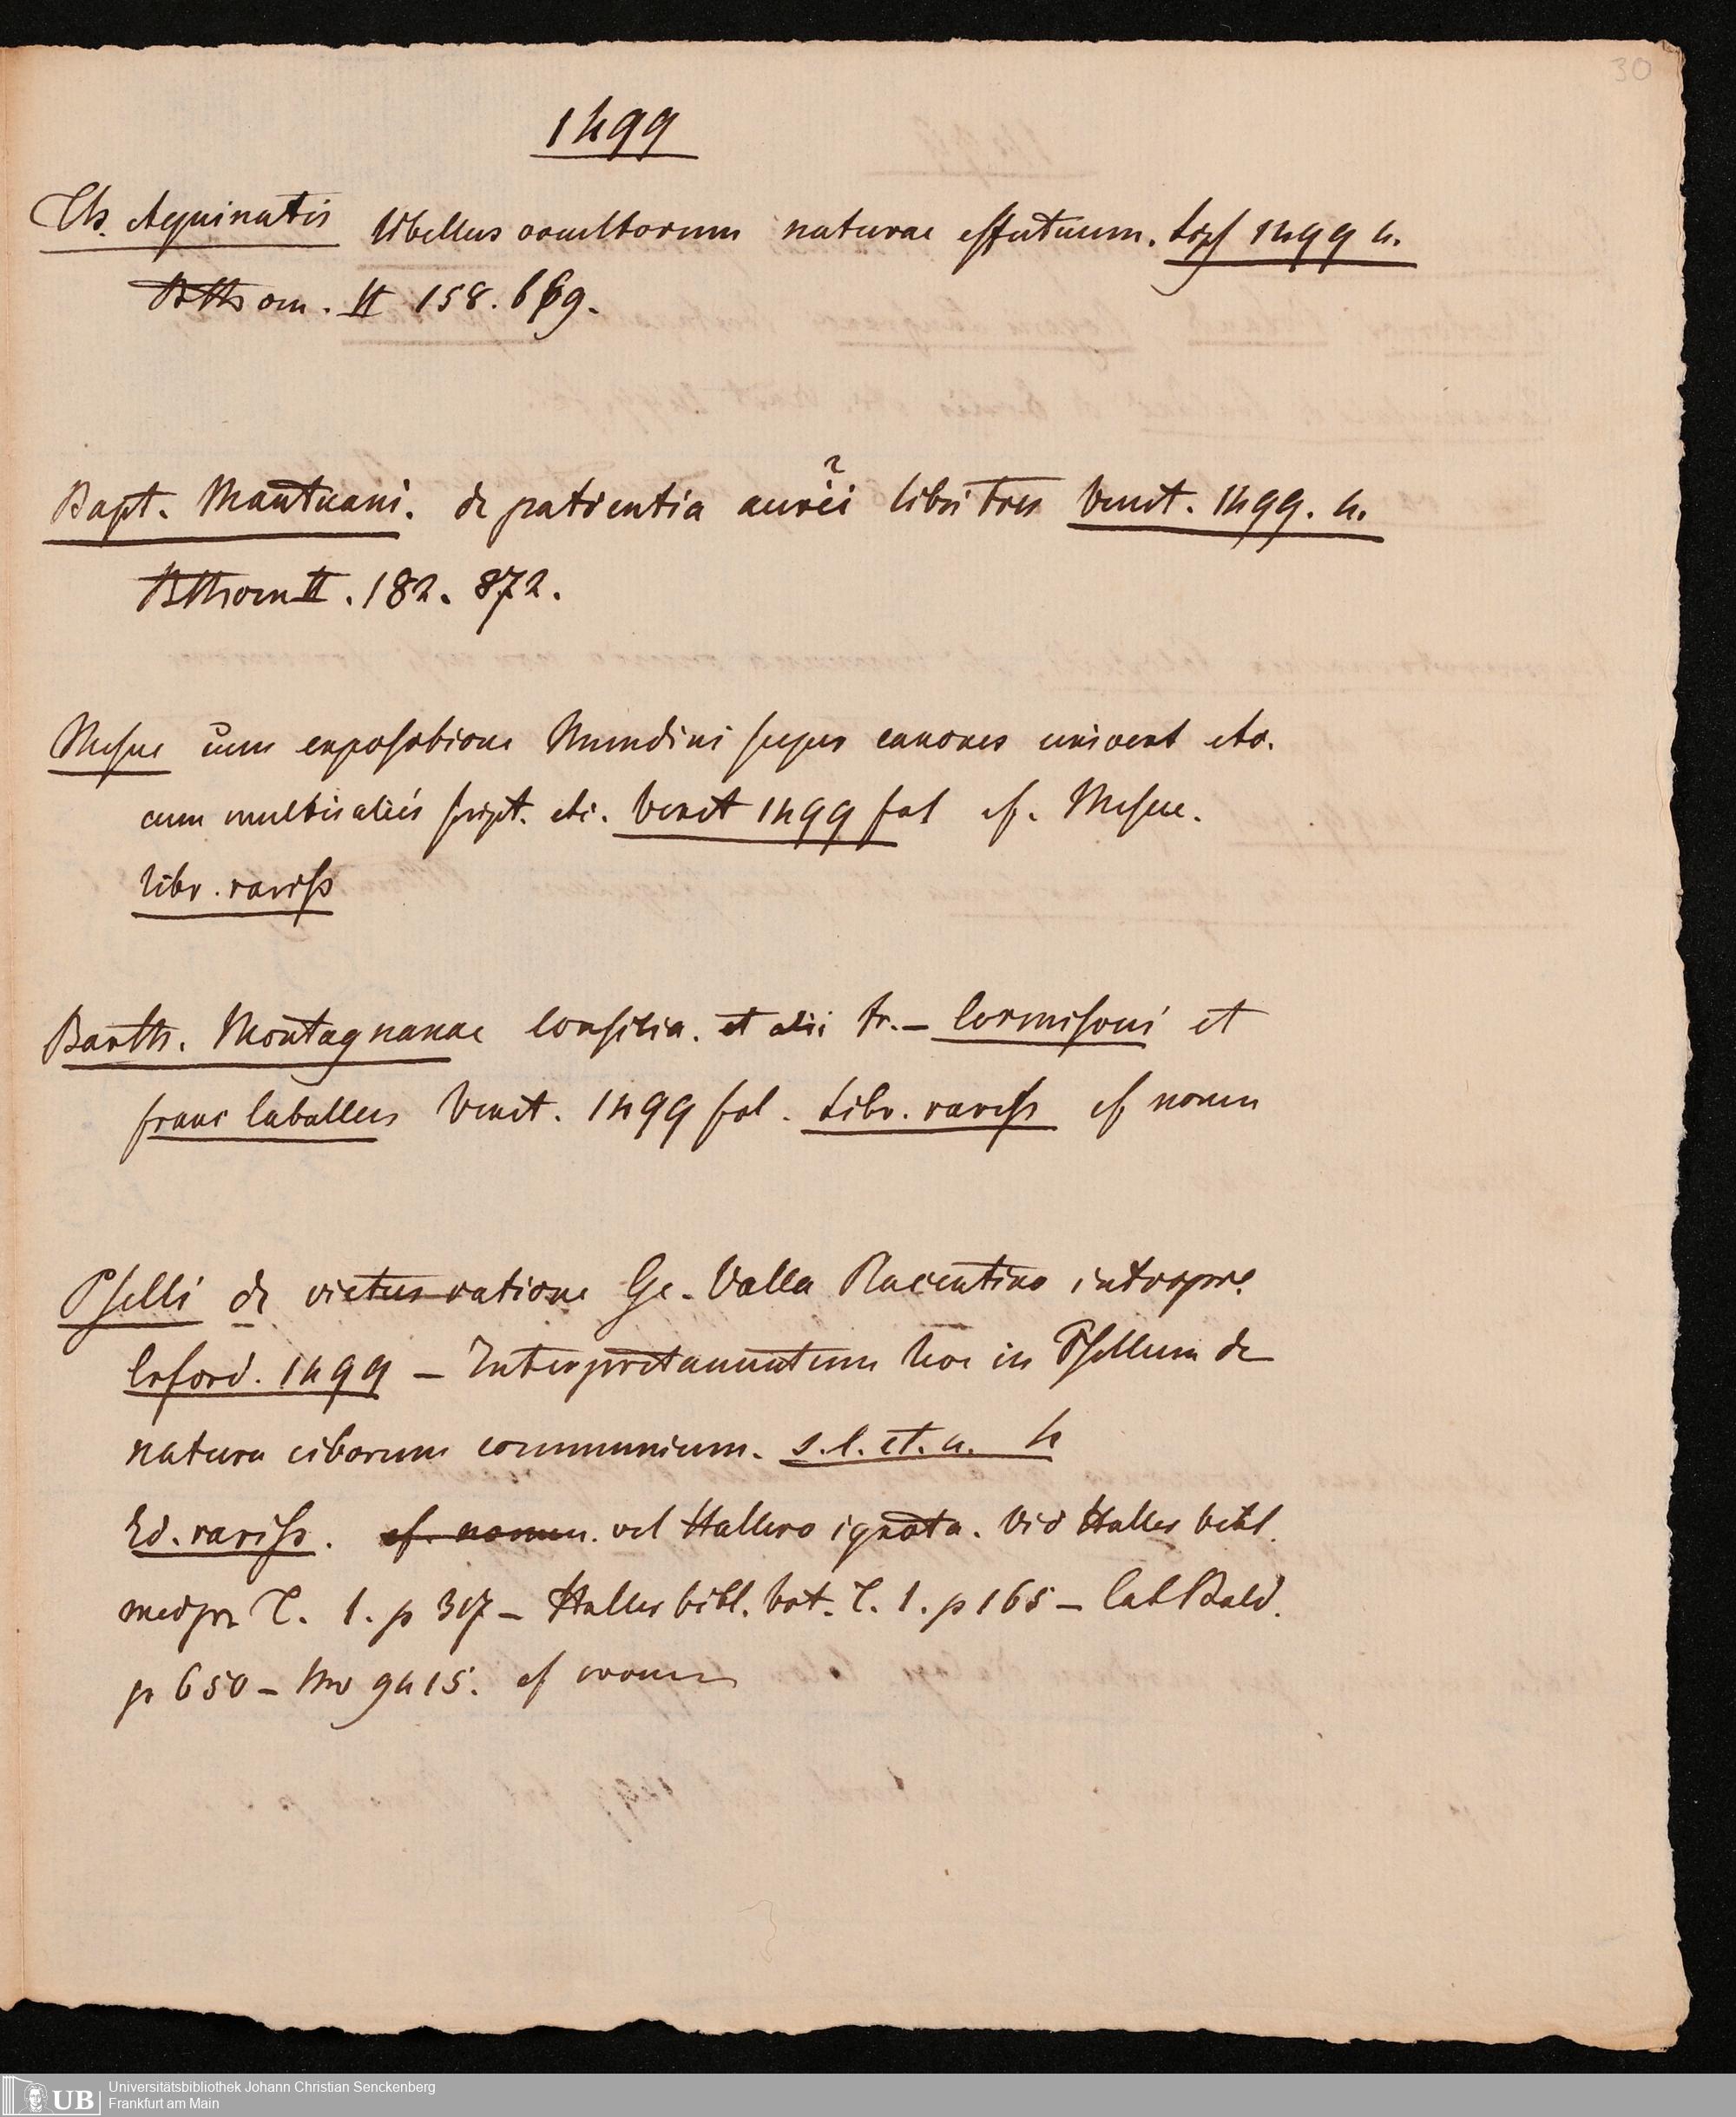 30
1499
Th. Aquinatis libellus occultorum naturae effectuum. Lips 1499 4.
BThom. II 158. 669.
?
Bapt. Mantuani. de patientia aurei libri tres Venet. 1499. 4.
BThom II. 182. 872.
Mesue cum expositione Mundini super canones univers etc.
cum multis aliis script. etc. Venet 1499 fol cf. Mesue.
libr. rariss
Barth. Montagnanae Consilia. et alii tr. – Cermisoni et
franc Caballus Venet. 1499 fol. Libr. rariss cf nomen
Pselli de victus ratione Ge. Valla Placentino interpre.
Erford. 1499 – Interpretamentum hoc in Psellum de
natura ciborum communium. s. l. et. a. 4
Ed. rariss. cf. nomen. vel Hallero ignota. Vid Haller bibl.
med pr T. 1. p 317 – Haller bibl. bot. T. 1. p 165 – Cat Bald.
p 650 – No 9415. cf nomen
UB
Universitätsbibliothek Johann Christian Senckenberg
Frankfurt am Main